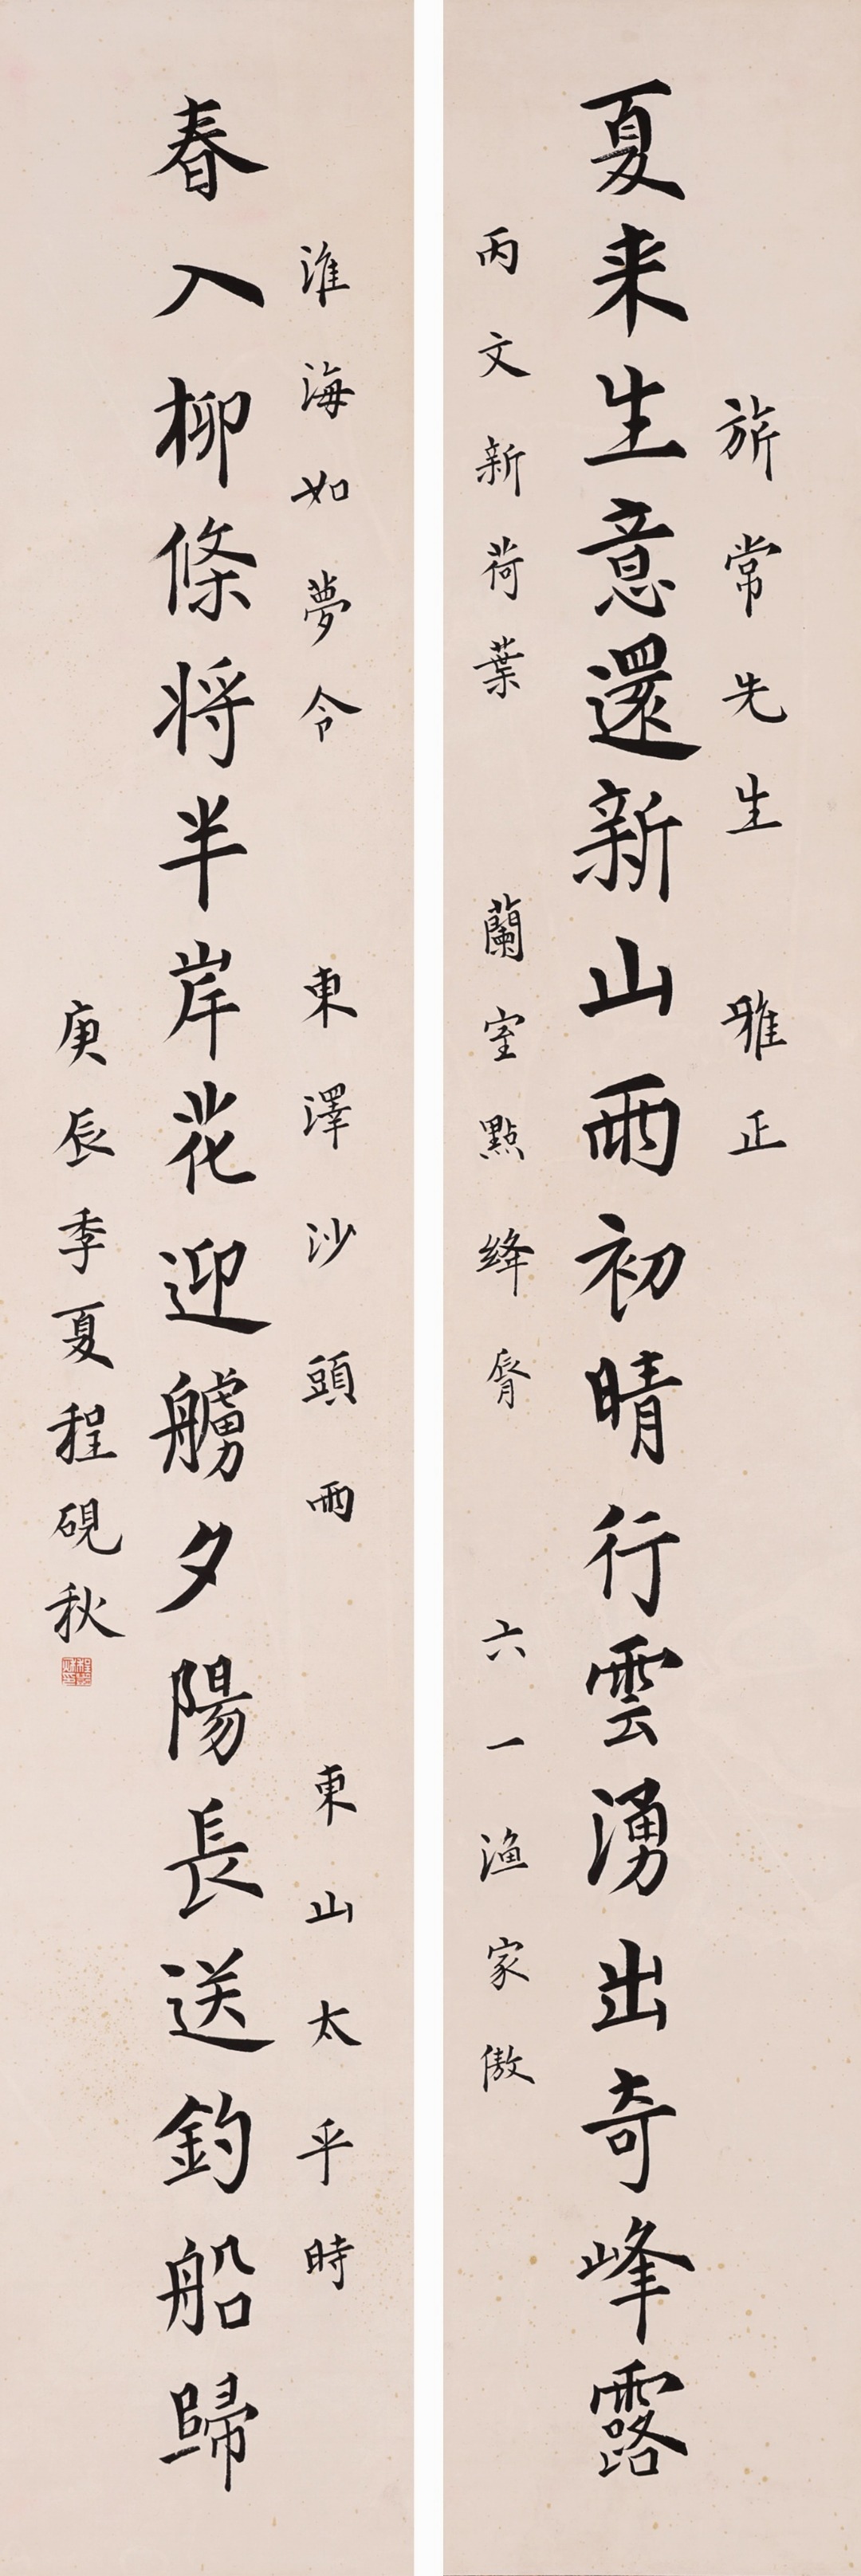 旂常先生 雅正
夏来生意還新山雨初晴行雲湧出奇峰露
丙文新荷葉 蘭室點絳脣 六一渔家傲
淮海如夢令 東澤沙頭雨 東山太平時
春入柳條将半岸花迎艣夕陽長送釣船歸
庚辰季夏程硯秋